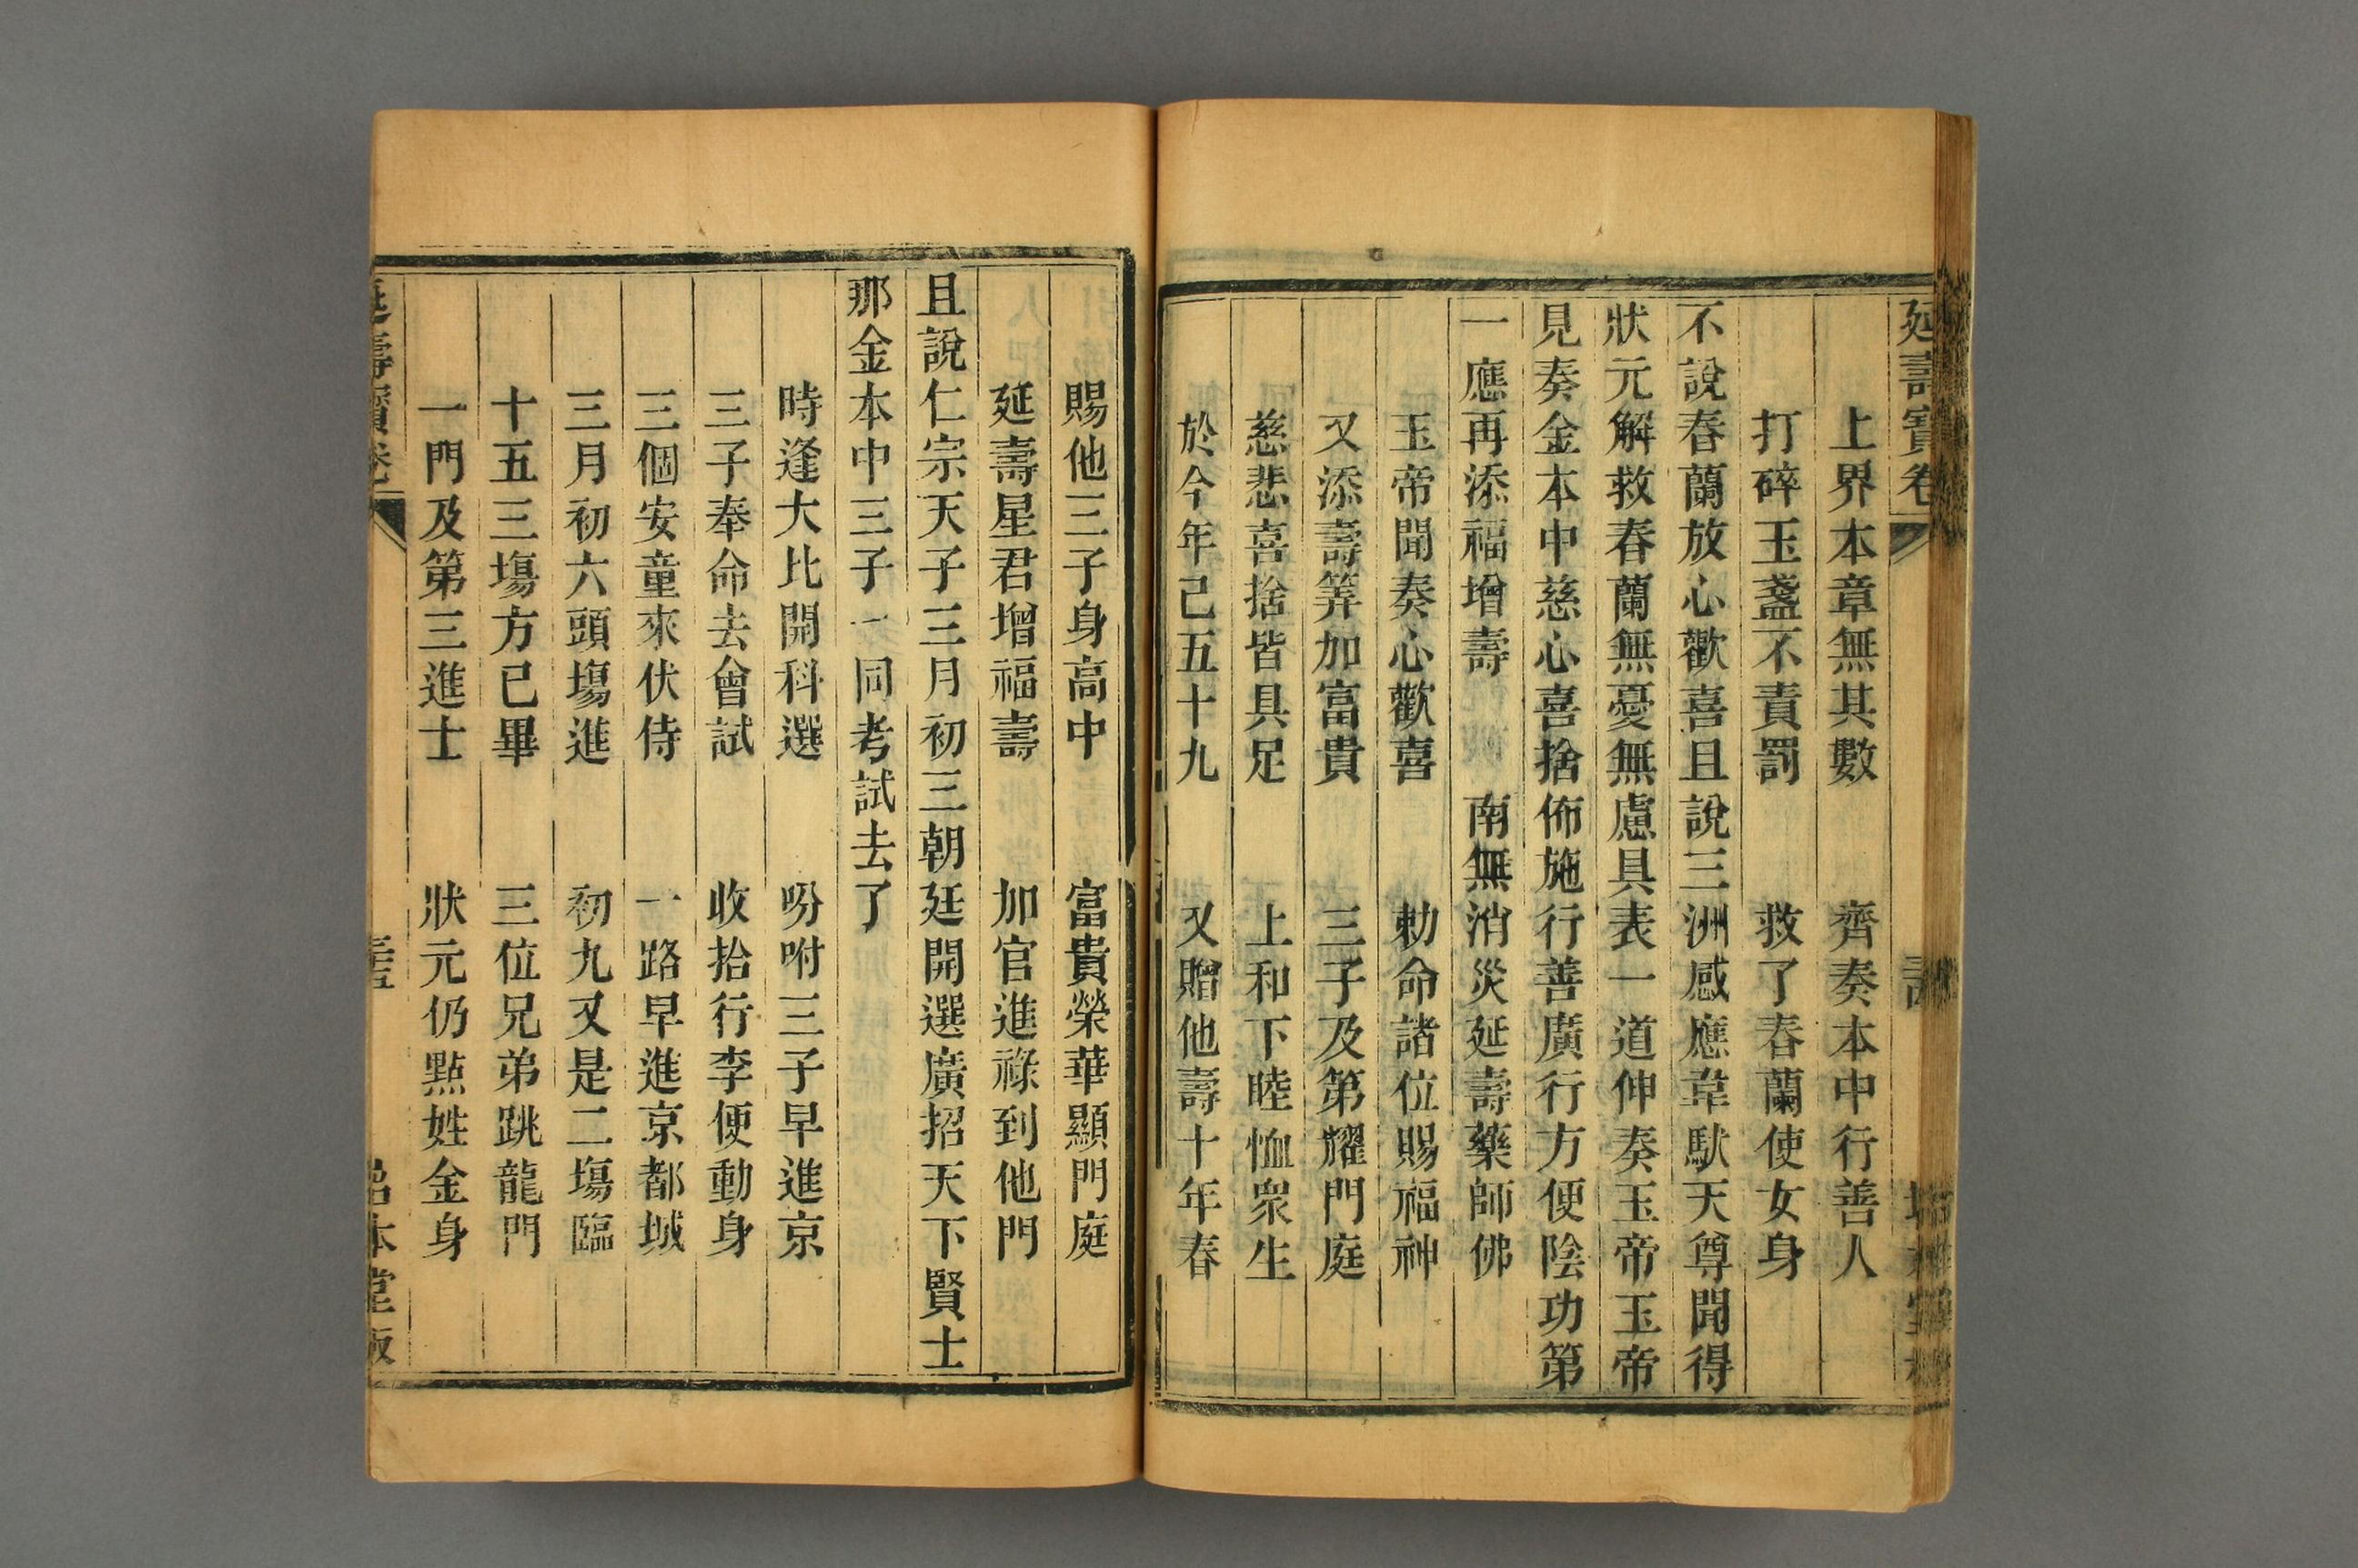 延壽寶卷
上界本章無其數 齊奏本中行善人
打碎玉盞不責罰 救了春蘭使女身
不說春蘭放心歡喜且說三洲感應韋馱天尊聞得
狀元解救春蘭無憂無慮具表一道伸奏玉帝玉帝
見奏金本中慈心喜捨佈施行善廣行方便陰功第
一應再添福增壽 南無消災延壽藥師佛
玉帝聞奏心歡喜 勅命諸位賜福神
又添壽筭加富貴 三子及第耀門庭
慈悲喜捨皆具足 上和下睦恤衆生
於今年已五十九 又贈他壽十年春
賜他三子身高中 富貴榮華顯門庭
延壽星君增福壽 加官進祿到他門
且說仁宗天子三月初三朝廷開選廣招天下賢士
那金本中三子一同考試去了
時逢大比開科選 吩咐三子早進京
三子奉命去會試 收拾行李便動身
三個安童來伏侍 一路早進京都城
三月初六頭塲進 初九又是二塲臨
十五三塲方已畢 三位兄弟跳龍門
一門及第三進士 狀元仍點姓金身
延壽寶卷 本堂板